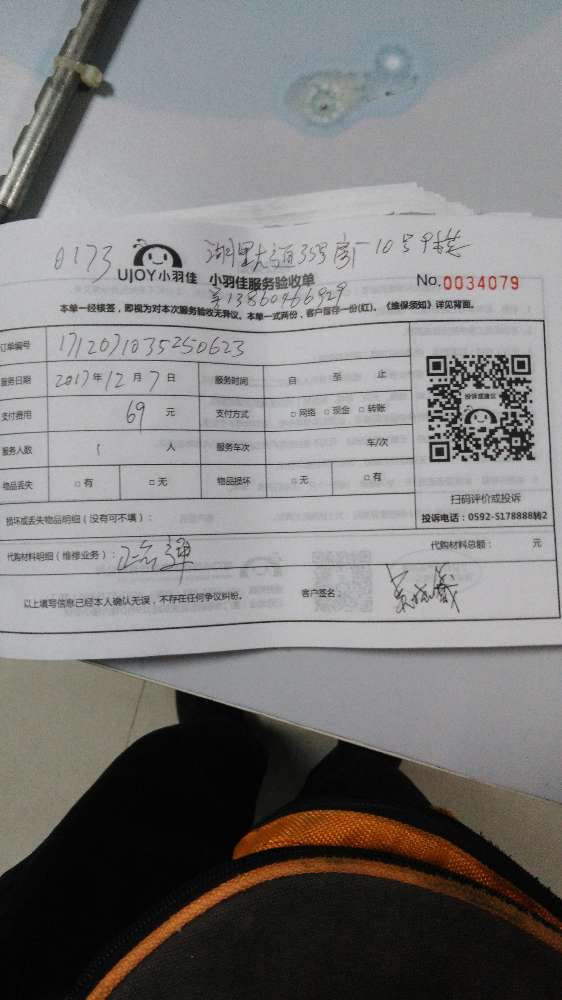 0173
UJOY小羽佳 小羽佳服务验收单
No.0034079
13860466929
本单一经核签，即视为对本次服务验收无异议。本单一式两份，客户留存一份(红)。《维保须知》详见背面。
订单编号 1712071035250623
服务日期 2017年12月7日 服务时间 自 至 止
支付费用 69 元 支付方式 □网络 □现金 □转账
服务人数 1 人 服务车次 车/次
物品丢失 □有 □无 物品损坏 □无 □有
投诉或建议
扫码评价或投诉
投诉电话：0592-5178888转2
损坏或丢失物品明细（没有可不填）：
代购材料明细（维修业务）：
代购材料总额： 元
以上填写信息已经本人确认无误，不存在任何争议纠纷。 客户签名：